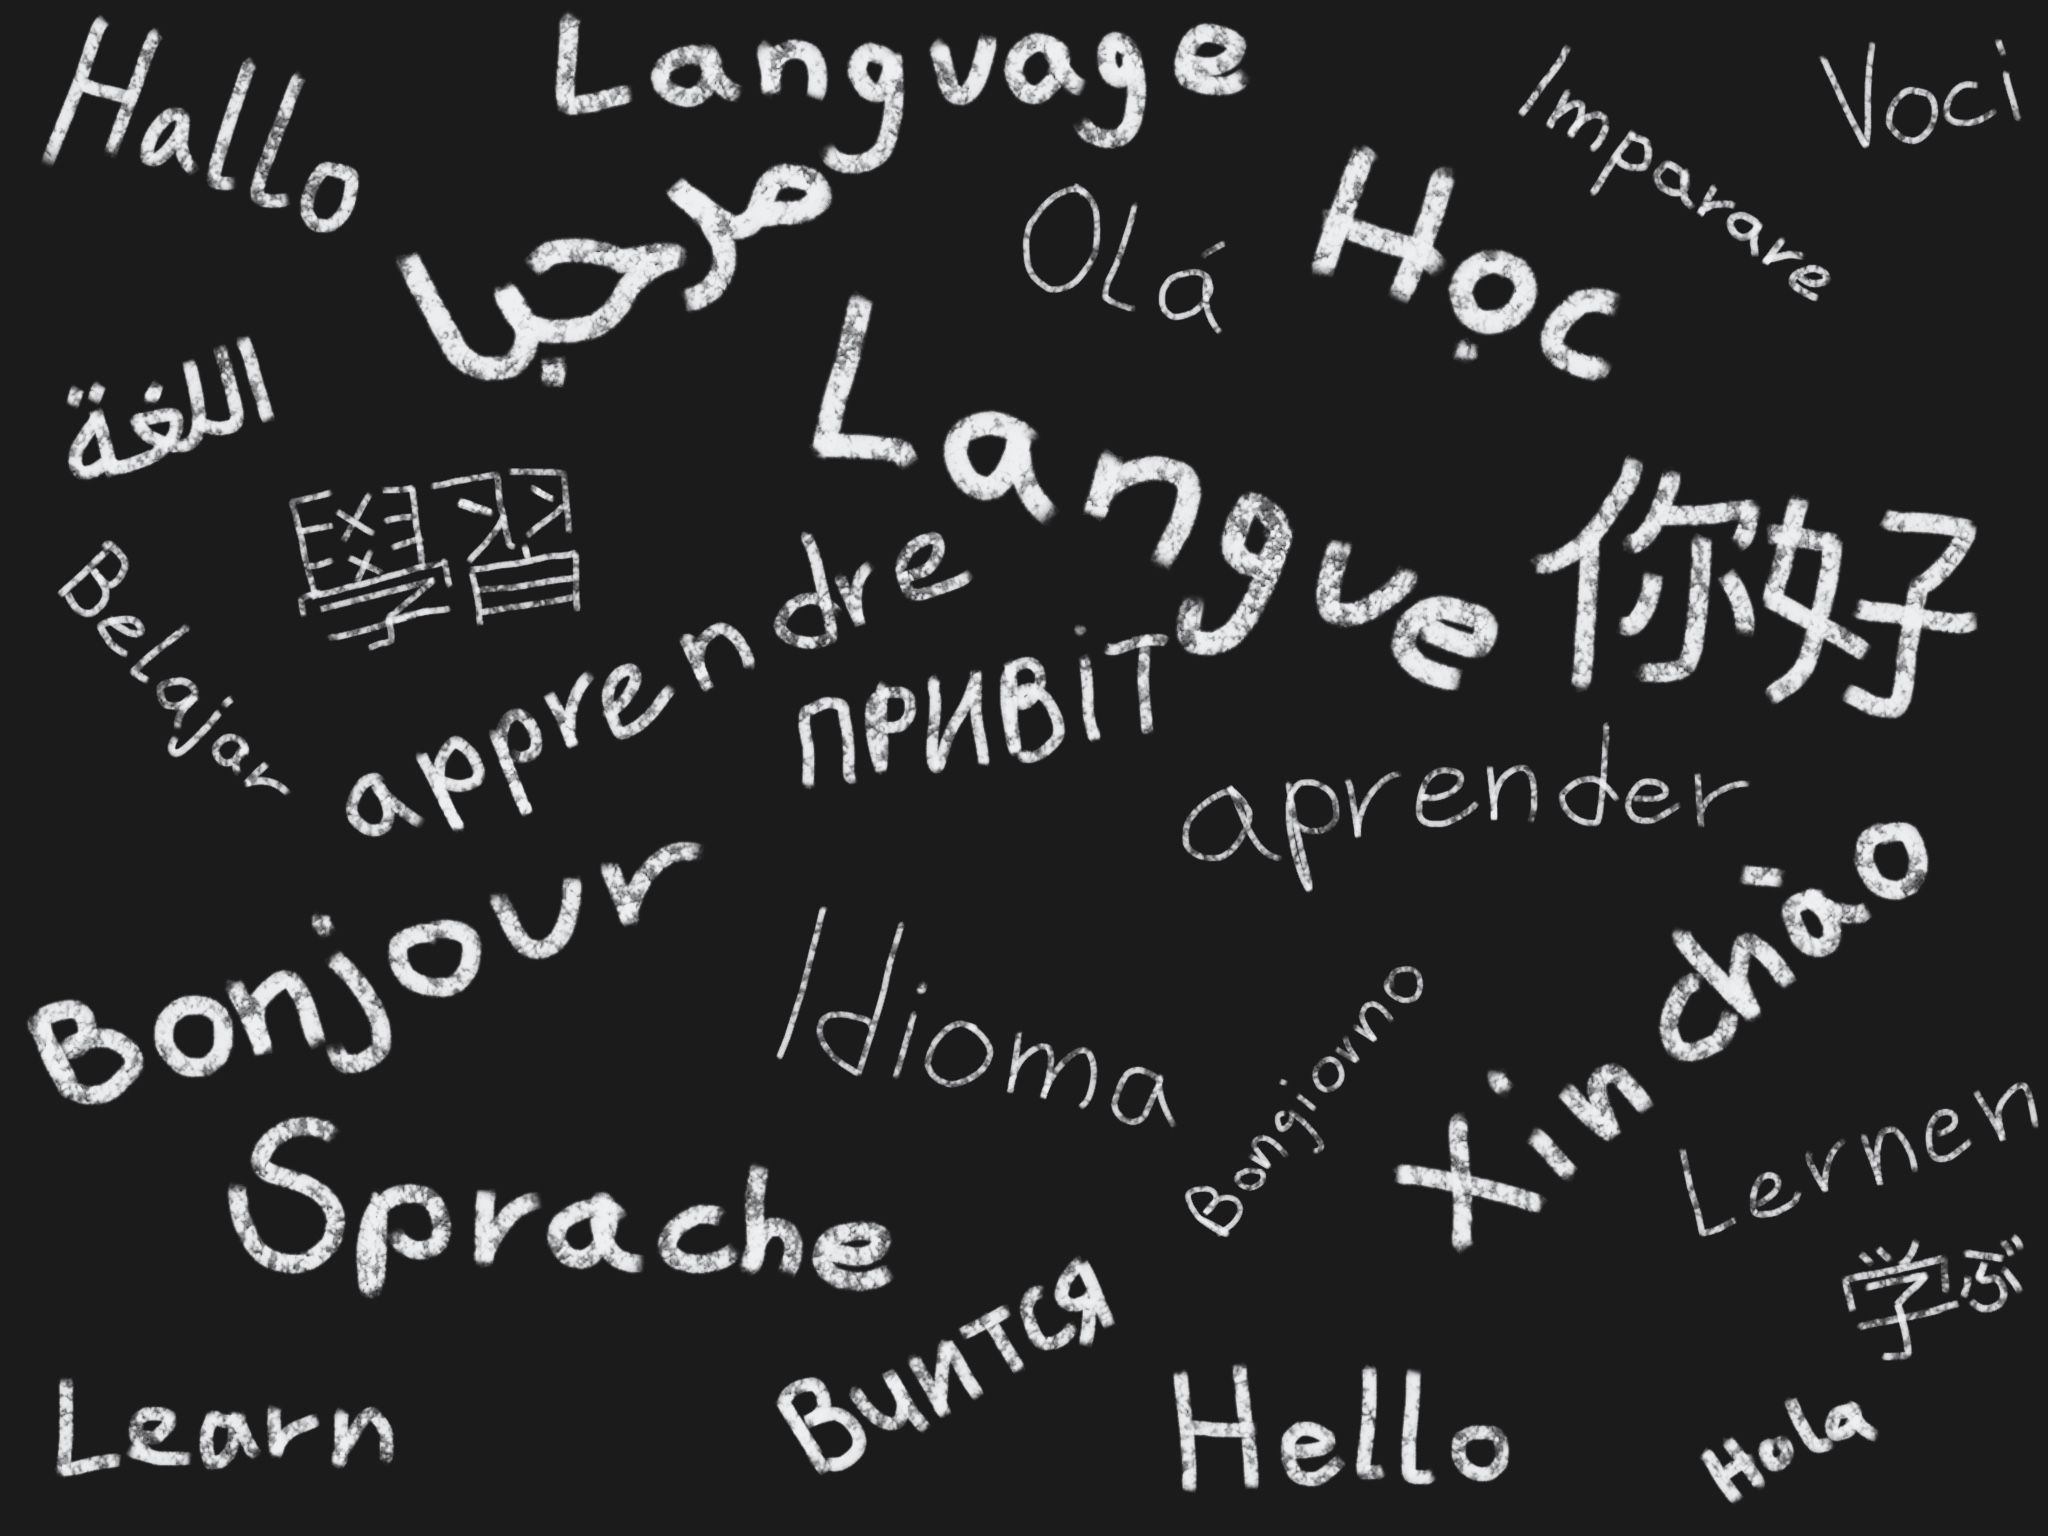 Hallo
Language
Imparare
Voci
مرحبا
Olá
Học
اللغة
Langue
學習
你好
Belajar
apprendre
привіт
aprender
Bonjour
Xin chāo
Idioma
Bongiorno
Lernen
Sprache
学ぶ
Вчится
Learn
Hello
Hola